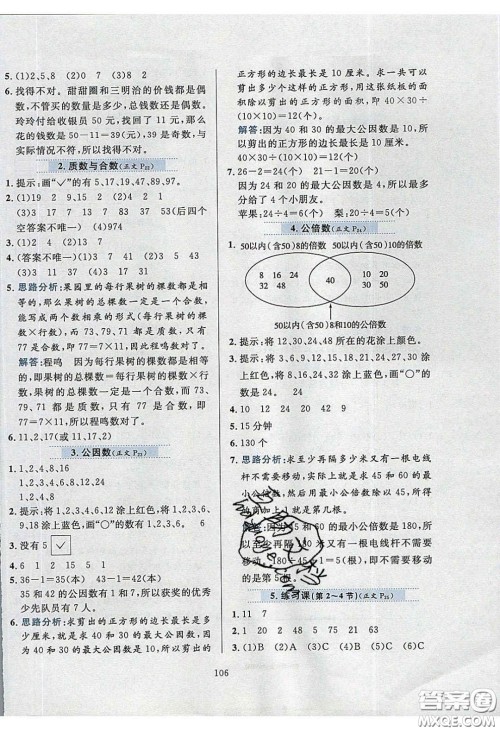 5. (1)2,5,8 (2)3 (3)8 2
6. 找得不对。甜甜圈和三明治的价钱都是偶
数,不管买的数量是多少,总钱数还是偶数。
玲玲付给收银员 50 元,找回了 11 元,那么
花的钱数是 50-11=39(元),39 是奇数,与
实际情况不符,所以找得不对。
2. 质数与合数(正文 P22)
1. 提示:画“✓”的有 5,17,19,47,89,97。
2. (1)19 2 91 (2)9 2
(3)3 17 31 37 53 17(后四个
空答案不唯一) (4)974
3. (1)2 4 (2)13 7
4. (答案不唯一)(1)3 7 (2)3 17
5. 思路分析:果园里的每行果树的棵数都是相
等的,那么果树的总棵数一定是一个合数,
能写成两个数相乘的形式(每行果树的棵
数×行数),而 73,79,71 都是质数,只有
77 是合数,即 77=7×11,所以程鸣数对了。
解答:程鸣 因为每行果树的棵数都是相等
的,即果树的总棵数一定是一个合数,而
73、79、71 都是质数,只有 77 是合数,即
77=7×11,所以程鸣数对了。
6. 11,2,17(或 11,17,2)
3. 公因数(正文 P23)
1. 1,2,4,8,16
1,2,3,4,6,8,12,24
1,2,4,8
2. 提示:将 1,2,3,4,6,12 涂上红色,将 1,2,3,6,
9,18 涂上蓝色,画“○”的数有 1,2,3,6 6
3. 没有 5 ✓
4. 6 1 2 15 5 1
5. 36-1=35(本) 43-1=42(本)
35 和 42 的公因数有 1 和 7,所以获奖的优秀
少先队员有 7 人。
6. 思路分析:求剪出的正方形的边长最大是多
少厘米,就是求 40 和 30 的最大公因数,40
和 30 的最大公因数是 10,所以剪出的
正方形的边长最长是 10 厘米。求一共可以
剪出多少个这样的正方形,用这张纸板的面
积除以剪出的正方形的面积,即 40×30÷
(10×10)=12(个)
解答:因为 40 和 30 的最大公因数是 10,
所以剪出的正方形的边长最长是 10 厘米。
40×30÷(10×10)=12(个)
7. 26-2=24(个) 18+2=20(个)
因为 24 和 20 的最大公因数是 4,所以最多
分给了 4 个小朋友。
苹果:24÷4=6(个) 梨:20÷4=5(个)
4. 公倍数(正文 P24)
1. 50以内(含50)8的倍数 50以内(含50)10的倍数
8 16 24 32 48
40
10 20 30 50
50以内(含50)8和10的公倍数
2. 提示:将 12,30,24,48 所在的花涂上颜色。
3. 提示:将 4,8,12,16,20,24,28,32,36 涂上
红色,将 8,16,24,32 涂上蓝色,画“○”的
数是 24。 24
4. 10 12 42 8 9 60
5. 15 分钟
6. 130 个
7. 思路分析:求至少再隔多少米又有一根电线
杆不需要移动,实际上就是求 45 和 60 的最
小公倍数,然后用最小公倍数除以 45,所得
的商加上 1 就是第几根。
解答:因为 45 和 60 的最小公倍数是 180,所
以至少再隔 180 米又有一根电线杆不需要移
动,180÷45+1=5(根),即下一根不需要移动
的是第 5 根。
5. 练习课(第 2~4 节)(正文 P25)
1. 11 7
2. (1)B (2)A (3)C (4)B (5)C
106